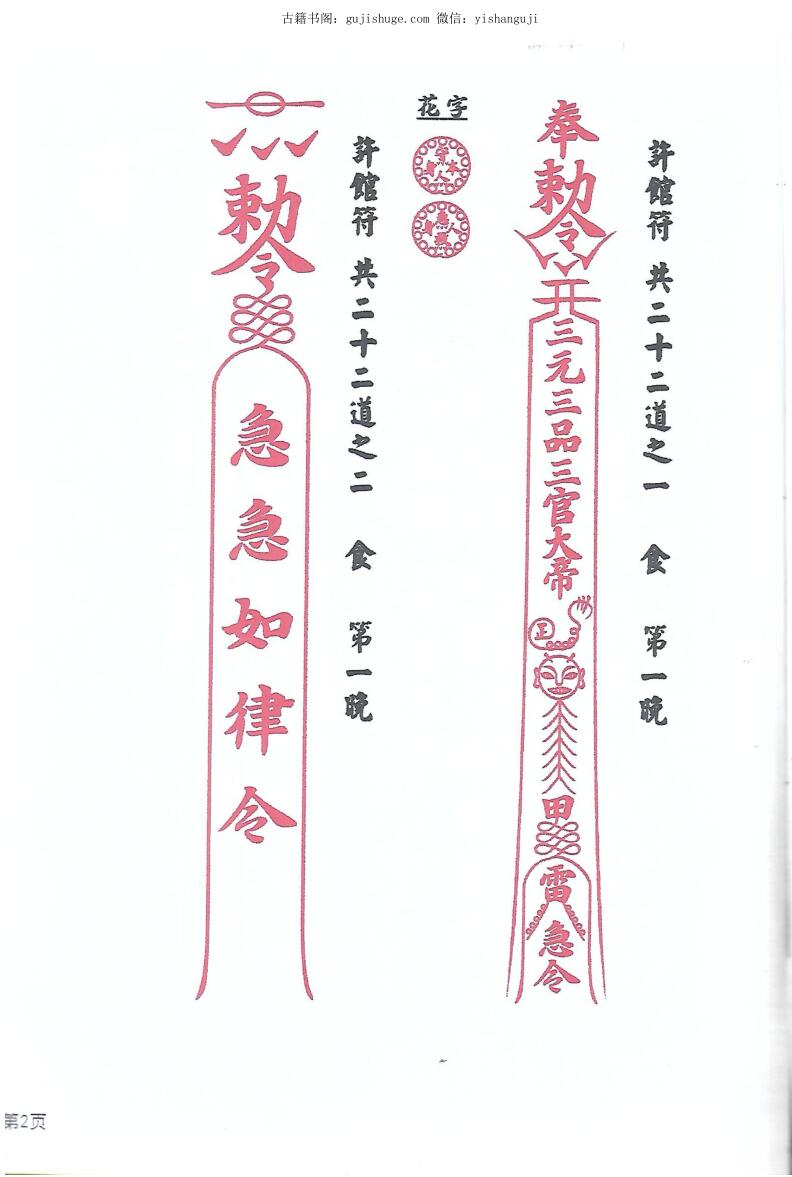 古籍书阁：gujishuge.com 微信：yishanguji
許館符 共二十二道之一 食 第一晚
奉
勅令
三元三品三官大帝
正
甲
雷
急令
花字
許館符 共二十二道之二 食 第一晚
勅令
急急如律令
第2页